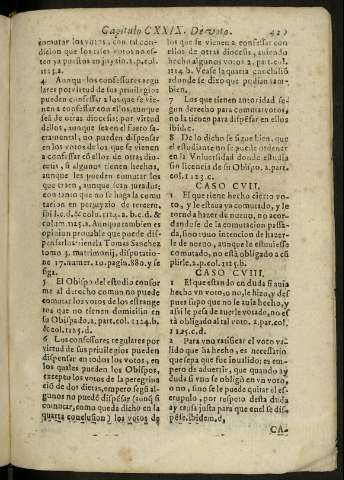 Capitulo CXXIX. De voto. 427
comutar los votos, con tal condicion
que los tales votos no esten
ya puestos en juyzio. 2. p. col.
1123. a.
4 Aunque los confessores regulares
por virtud de sus privilegios
pueden confessar a los que se vienen
a confessar con ellos, aunque
sea de otras diocesis; por virtud
dellos, aunque sea en fuero sacramental,
no pueden dispensar
en los votos de los que se vienen
a confessar cõ ellos de otras diocesis,
si algunos tienen hechos,
aunque les pueden comutar los
que traen, aunque sean jurados;
con tanto que no se haga la comutacion
en perjuyzio de tercero,
ibi l. c. d. & colu. 1124. a. b. c. d. &
colum. 1125. a. Aunque tambien es
opinion prouable que puede dispensarlos:
tienela Tomas Sanchez
tomo 3. matrimonij, disputatione
17. numer. 10. pagin. 880. y se
siga.
5 El Obispo del estudio conforme
al derecho comun no puede
comutar los votos de los estrangeros
que no tienen domicilio en
su Obispado. 2. part. col. 1124. b.
& col. 1125. d.
6 Los confessores regulares por
virtud de sus privilegios pueden
dispensar en todos los votos, en
los quales pueden los Obispos,
excepto los votos de la peregrinacion
de dos dietas, empero segũ algunos
no puedẽ dispẽsar (aunq̃ si
comutar, como queda dicho en la
quarta conclusion) los votos de
los que se vienen a confessar con
ellos de otras diocesis, auiendo
hecho algunos votos 2. part. col.
1124. b. Vease la quarta conclusiõ
adonde se dixo que podian tambien.
7 Los que tienen autoridad segun
derecho para comutar votos,
no la tienen para dispẽsar en ellos
ibid. c.
8 De lo dicho se sigue bien, que
el estudiante no se puede ordenar
en la Vniuersidad donde estudia
sin licencia de su Obispo. 2. part.
col. 1123. c.
CASO CVII.
1 El que tiene hecho cierto voto,
y le està ya comutado, y le
torna a hazer de nueuo, no acordandose
de la comutacion passada,
sino tuuo intencion de hazerle
de nueuo, aunque le estuuiesse
comutado, no està obligado a cũplirle.
2. p. col. 1125. b.
CASO CVIII.
1 El que estando en duda si auia
hecho vn voto, o no, le hizo, y despues
supo que no le auia hecho, y
assi le pesa de auerle votado, no està
obligado al tal voto. 2. par. col.
1125. c. d.
2 Para vno ratificar el voto valido
que ha hecho, es necessario
que sepa que fue inualido; es empero
de aduertir, que quando ay
duda si vno se obligò en vn voto,
o no, sino se le puede quitar el escrupulo,
por respeto desta duda
ay causa justa para que en el se dispẽse.
ibidem. d,
CA-